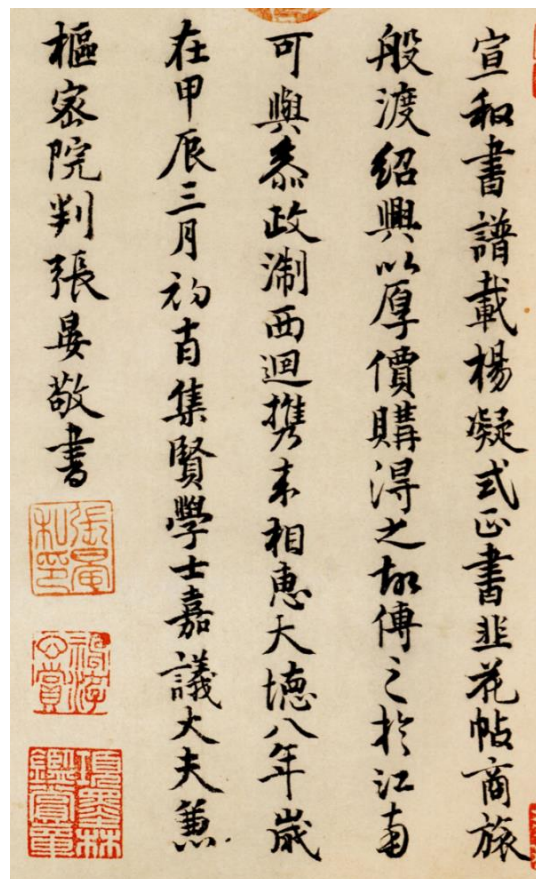 宣和書譜載楊凝式正書韭花帖商旅
般渡紹興以厚價購得之故傳之於江南
可與叅政淛西迴携来相惠大德八年歲
在甲辰三月初吉集賢學士嘉議大夫兼
樞密院判張晏敬書
張晏私印
項墨林鑑賞章